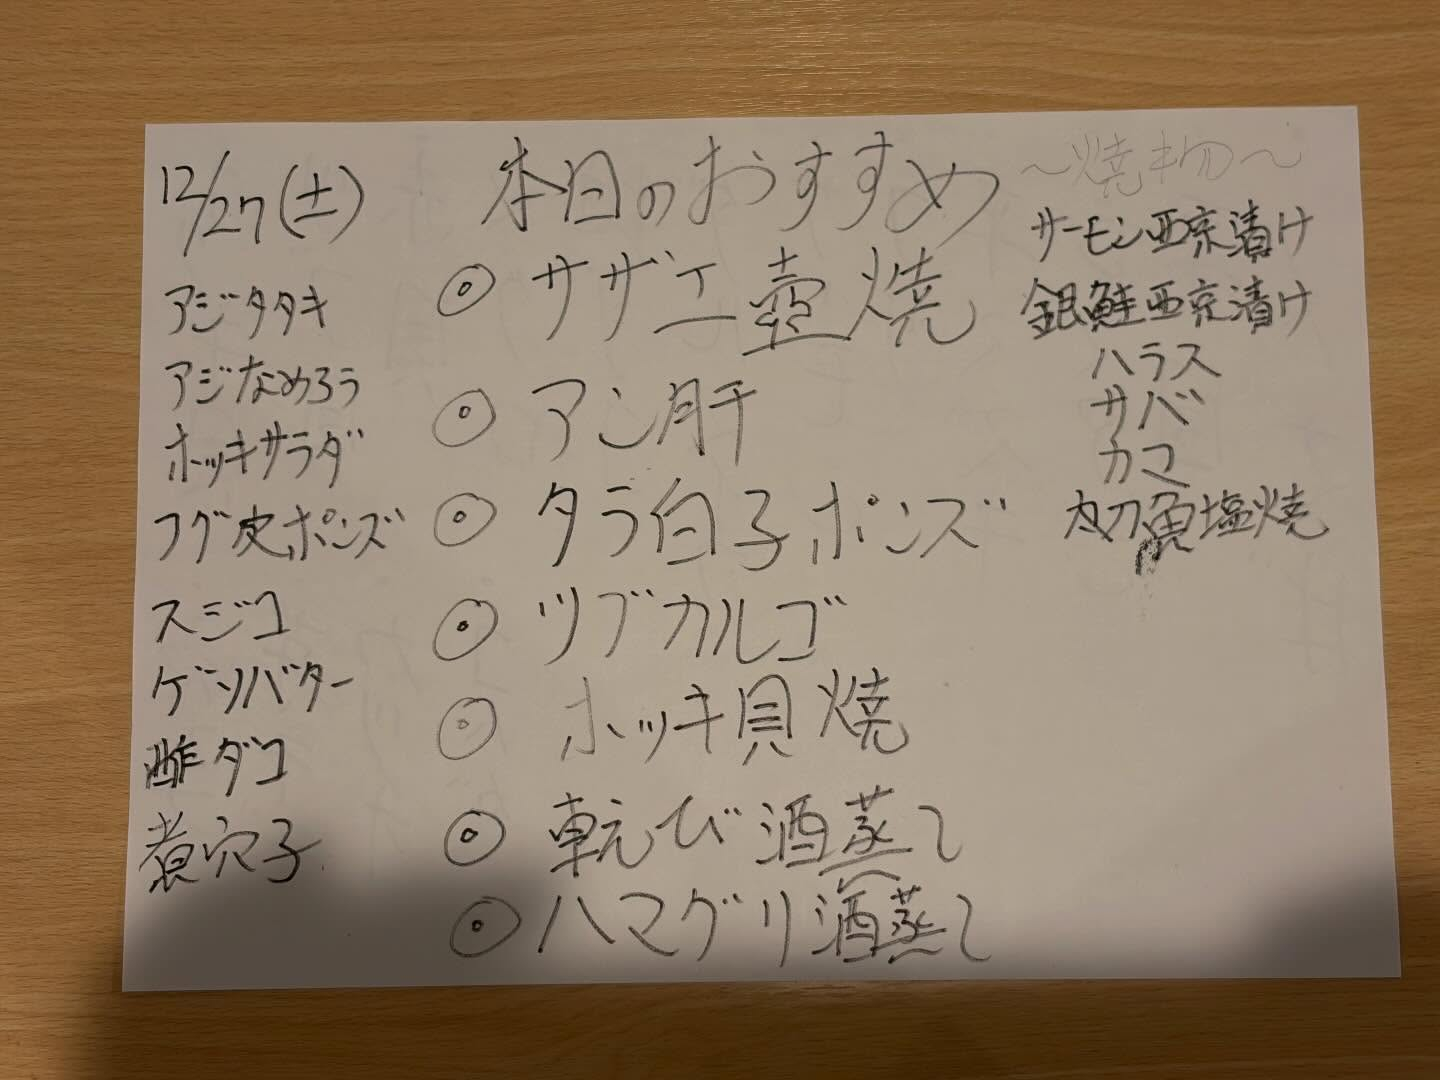 12/27(土)
アジタタキ
アジなめろう
ホッキサラダ
フグ皮ポンズ
スジコ
ゲソバター
酢ダコ
煮穴子
本日のおすすめ
◎ サザエ壺焼
◎ アン肝
◎ タラ白子ポンズ
◎ ツブカルゴ
◎ ホッキ貝焼
◎ 転び酒蒸し
◎ ハマグリ酒蒸し
〜焼物〜
サーモン西京漬け
銀鮭西京漬け
ハラス
サバ
カマ
太刀魚塩焼